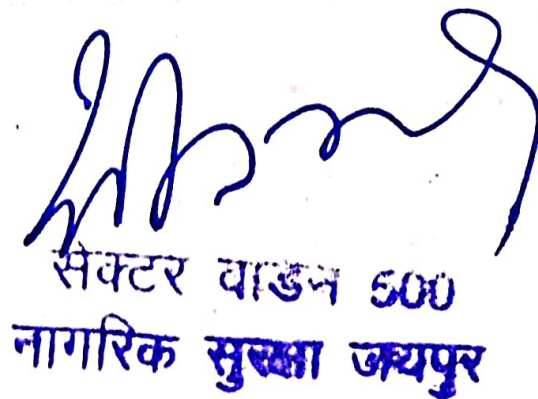 सेक्टर वार्डन 500
नागरिक सुरक्षा जयपुर